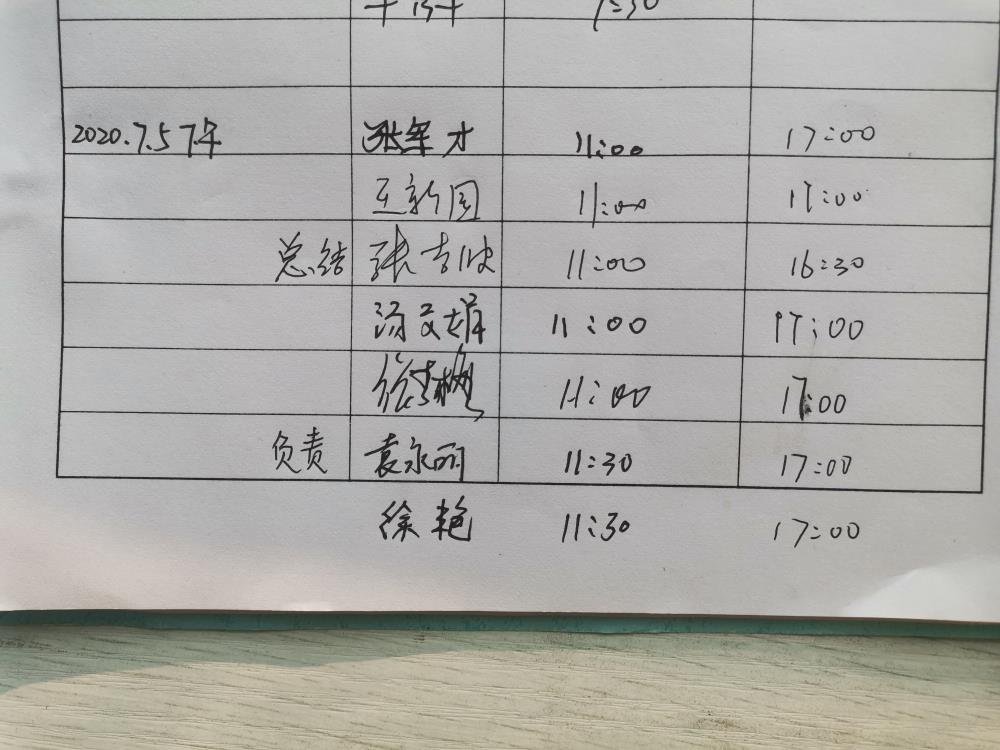 7:30
2020.7.5 下午 张军才 11:00 17:00
王新国 11:00 17:00
总结 张 11:00 16:30
汤文娟 11:00 17:00
徐 11:00 17:00
负责 袁永丽 11:30 17:00
徐艳 11:30 17:00